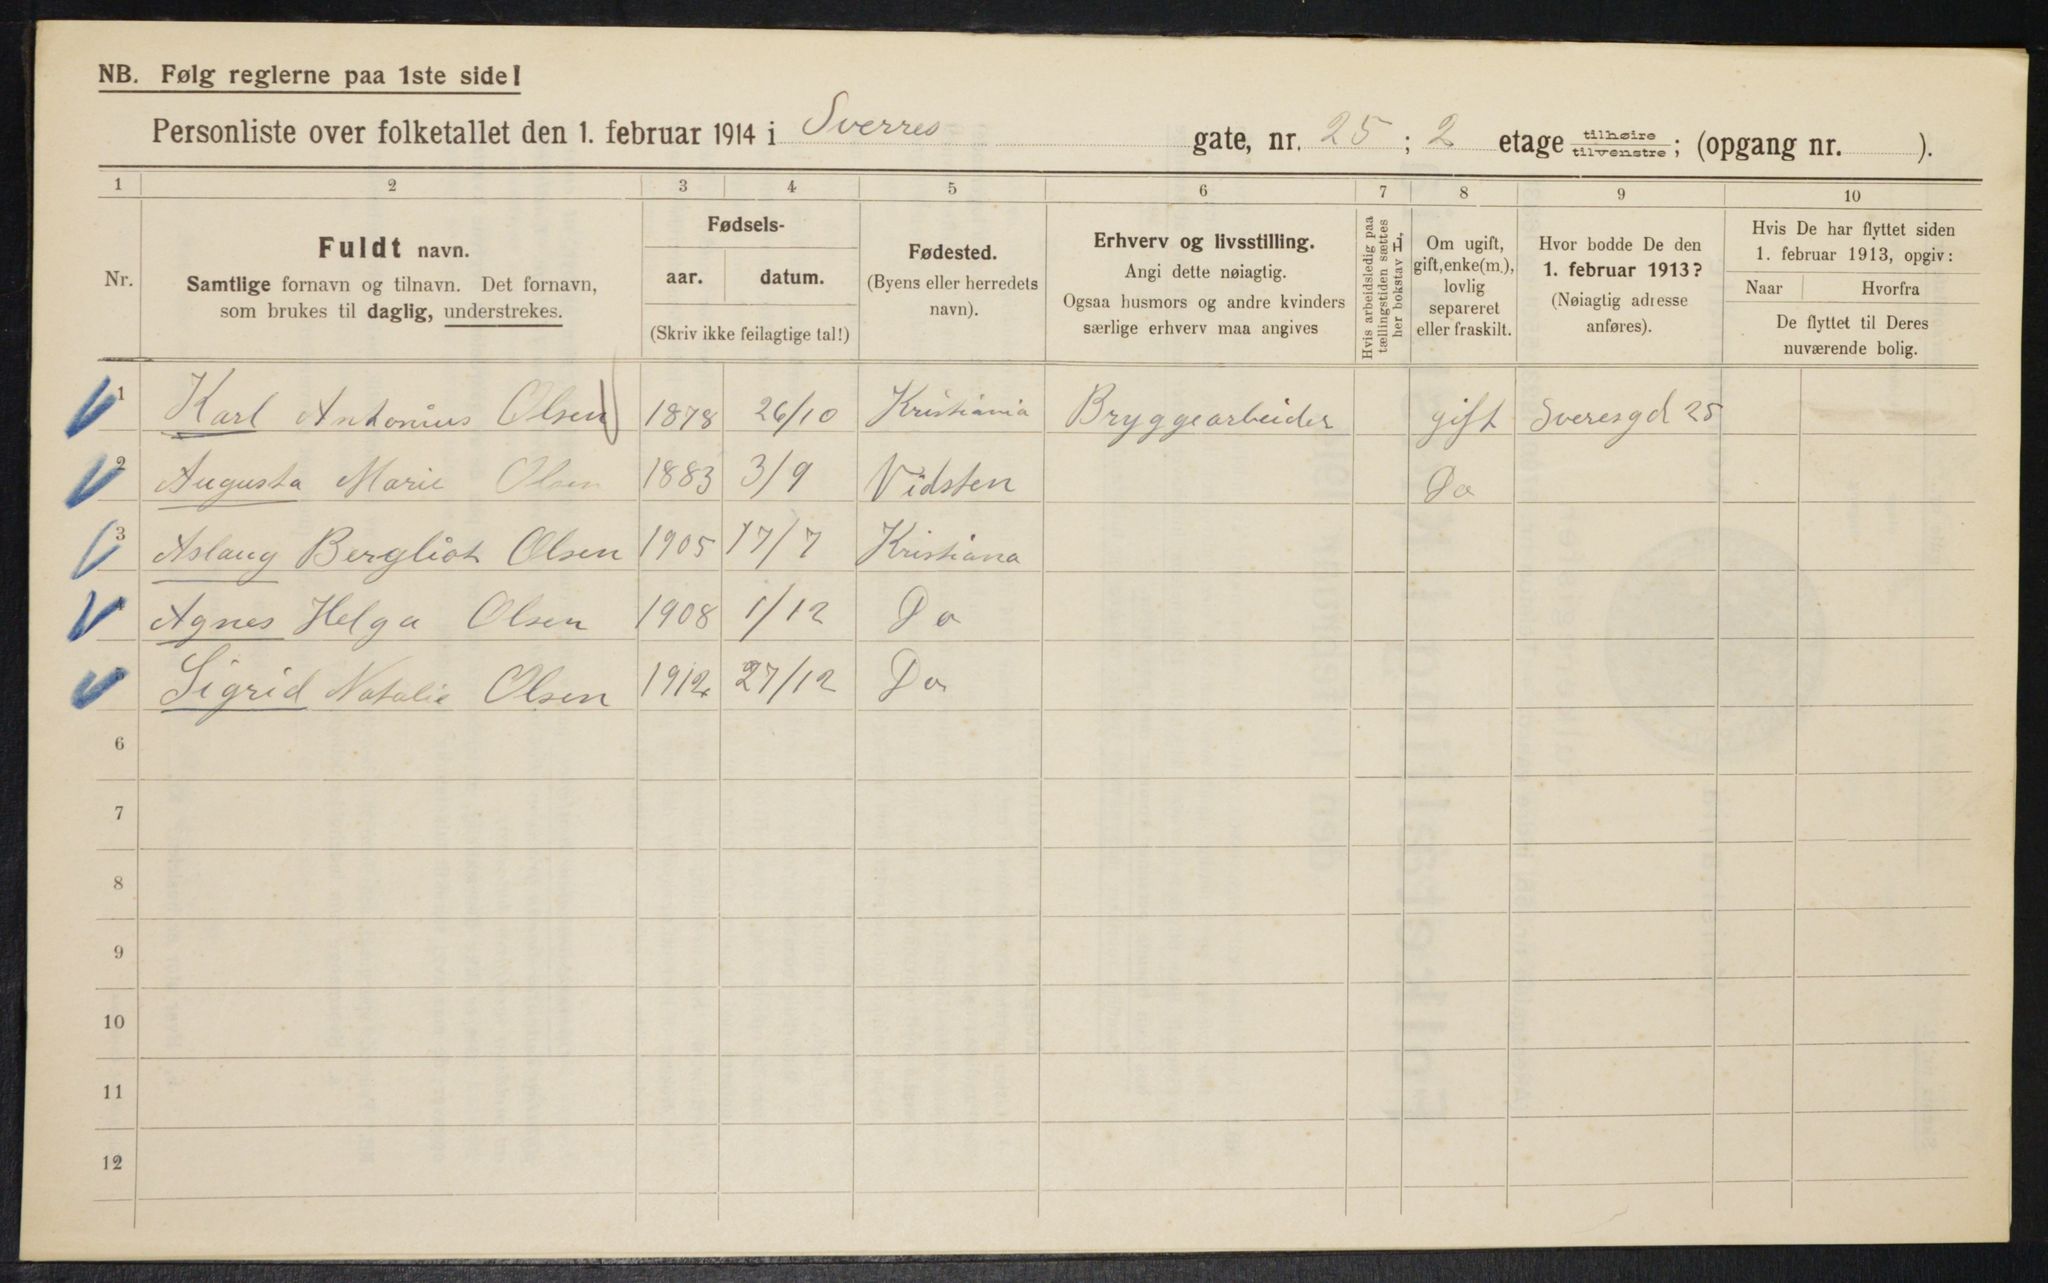 NB. Følg reglerne paa 1ste side!
Personliste over folketallet den 1. februar 1914 i Sverres gate, nr. 25 ; 2 etage tilhøire tilvenstre ; (opgang nr. ).
1 2 3 4 5 6 7 8 9 10
Nr.
Fuldt navn.
Samtlige fornavn og tilnavn. Det fornavn,
som brukes til daglig, understrekes.
Fødsels-
aar. datum.
(Skriv ikke feilagtige tal!)
Fødested.
(Byens eller herredets
navn).
Erhverv og livsstilling.
Angi dette nøiagtig.
Ogsaa husmors og andre kvinders
særlige erhverv maa angives
Hvis arbeidsledig paa
tællingstiden sættes
her bokstav L.
Om ugift,
gift, enke(m.),
lovlig
separeret
eller fraskilt.
Hvor bodde De den
1. februar 1913?
(Nøiagtig adresse
anføres).
Hvis De har flyttet siden
1. februar 1913, opgiv:
Naar Hvorfra
De flyttet til Deres
nuværende bolig.
1 Karl Antonius Olsen 1878 26/10 Kristiania Bryggearbeider gift Sveresgd 25
2 Augusta Marie Olsen 1883 3/9 Vidsten Do
3 Aslaug Bergliot Olsen 1905 17/7 Kristiana
4 Agnes Helga Olsen 1908 1/12 Do
5 Sigrid Natalie Olsen 1912 27/12 Do
6
7
8
9
10
11
12